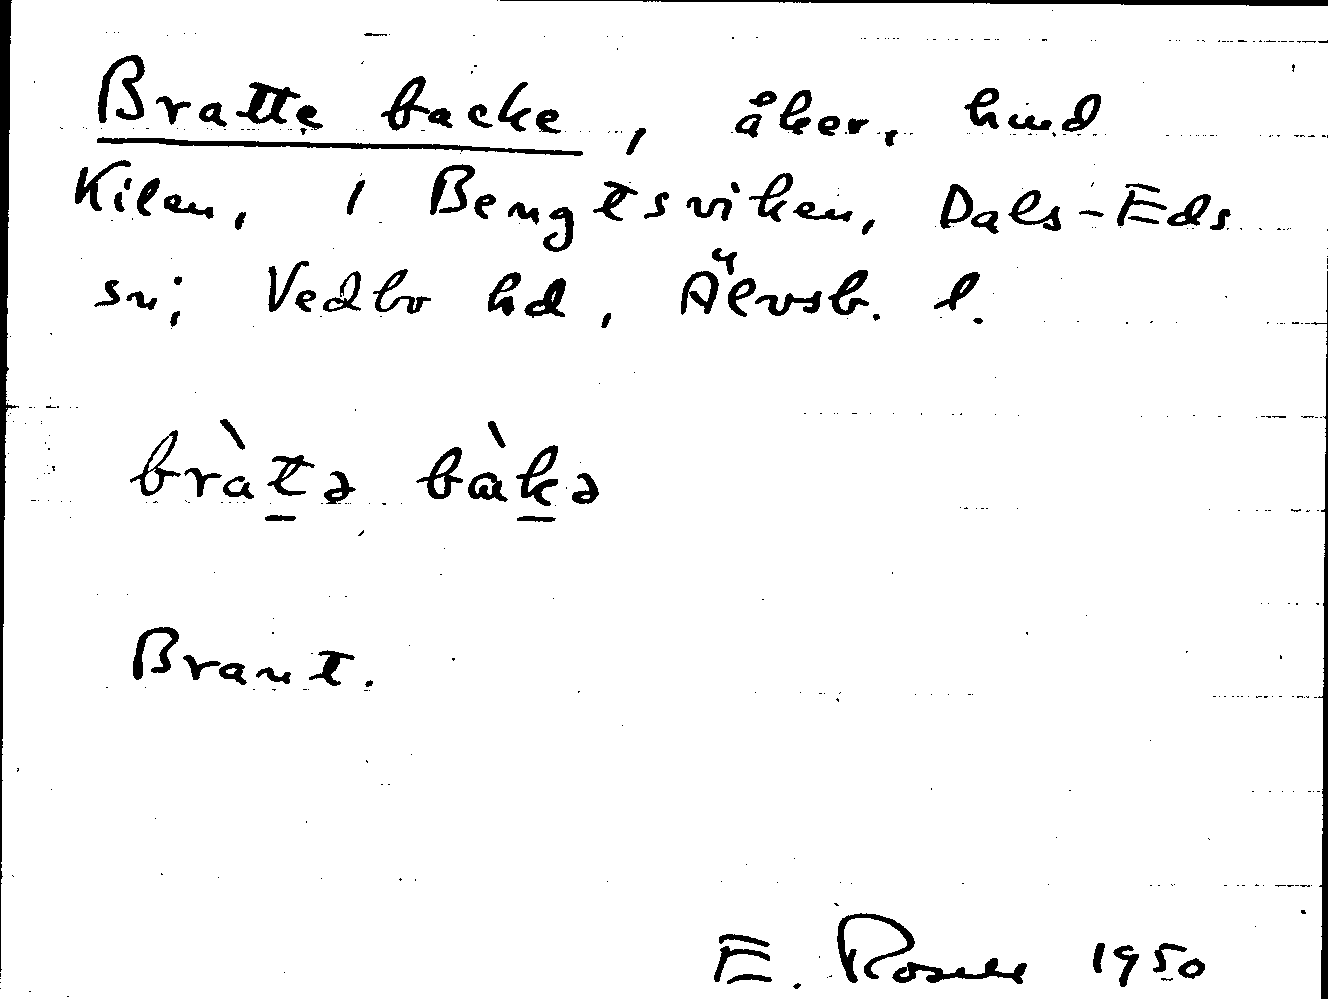 Bratte backe, åker, hmd
Kilen, 1 Bengtsviken, Dals-Eds
sn; Vedbo hd, Älvsb. l.
bràtə bàkə
Brant.
E. 1950